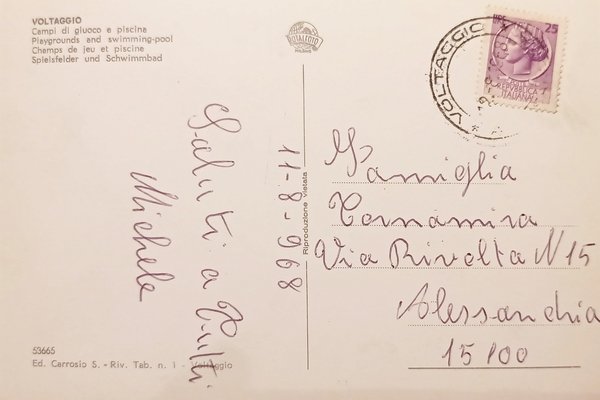 VOLTAGGIO
Campi di giuoco e piscina
Playgrounds and swimming-pool
Champs de jeu et piscine
Spielsfelder und Schwimmbad
ROTALFOTO
VOLTAGGIO
25
REPUBBLICA
ITALIANA
Saluti a Tutti
Michele
11-8-968
Riproduzione Vietata
Famiglia
Via Rivolta N 15
Alessandria
15100
53665
Ed. Carrosio S. - Riv. Tab. n. 1 - Voltaggio